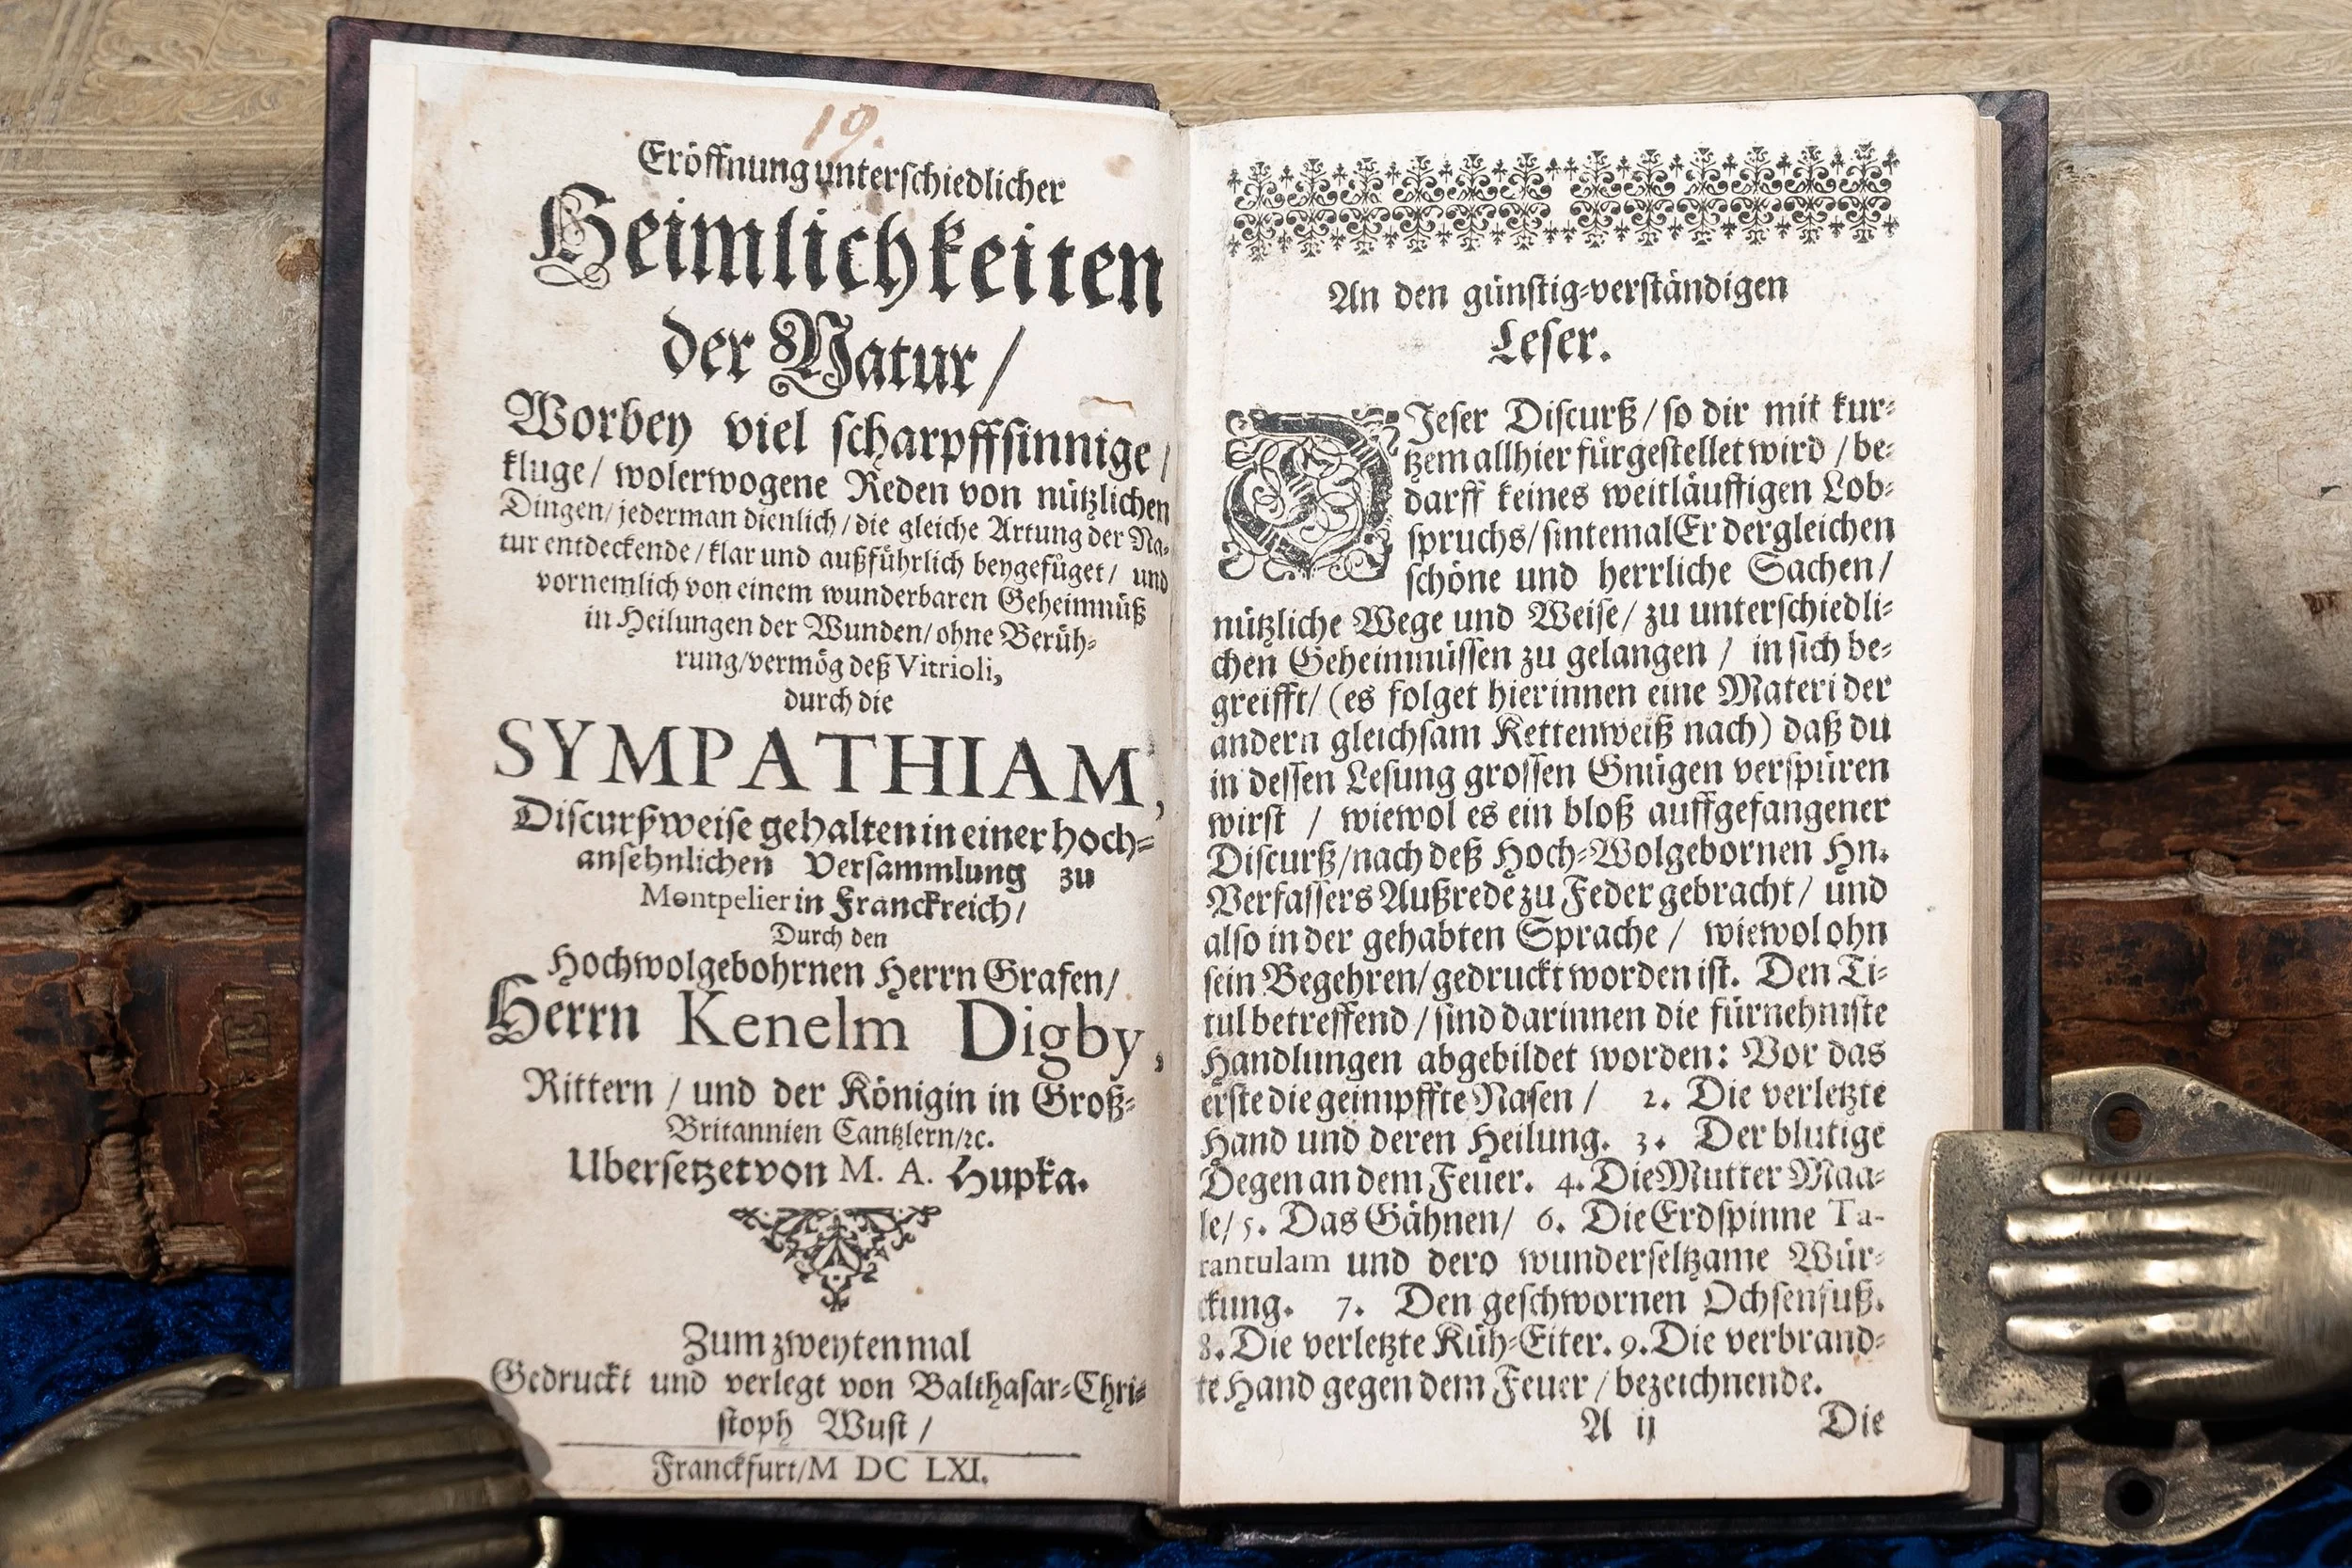 19.
Eröffnung unterschiedlicher
Heimlichkeiten
der Natur /
Worbey viel scharpffsinnige /
kluge / wolerwogene Reden von nützlichen
Dingen / jederman dienlich / die gleiche Artung der Na-
tur entdeckende / klar und außführlich beygefüget / und
vornemlich von einem wunderbaren Geheimnüß
in Heilungen der Wunden / ohne Berüh-
rung / vermög deß Vitrioli,
durch die
SYMPATHIAM,
Discurßweise gehalten in einer hoch-
ansehnlichen Versammlung zu
Montpelier in Franckreich /
Durch den
Hochwolgebohrnen Herrn Grafen /
Herrn Kenelm Digby,
Rittern / und der Königin in Groß-
Britannien Cantzlern / ꝛc.
Ubersetzet von M. A. Hupka.
Zum zweyten mal
Gedruckt und verlegt von Balthasar-Chri-
stoph Wust /
Franckfurt / M DC LXI.
An den günstig-verständigen
Leser.
DJeser Discurß / so dir mit kur-
tzem allhier fürgestellet wird / be-
darff keines weitläufftigen Lob-
spruchs / sintemal Er dergleichen
schöne und herrliche Sachen /
nützliche Wege und Weise / zu unterschiedli-
chen Geheimnüssen zu gelangen / in sich be-
greifft / (es folget hierinnen eine Materi der
andern gleichsam Kettenweiß nach) daß du
in dessen Lesung grossen Gnügen verspüren
wirst / wiewol es ein bloß auffgefangener
Discurß / nach deß Hoch-Wolgebornen Hn.
Verfassers Außrede zu Feder gebracht / und
also in der gehabten Sprache / wiewol ohn
sein Begehren / gedruckt worden ist. Den Ti-
tul betreffend / sind darinnen die fürnehmste
Handlungen abgebildet worden: Vor das
erste die geimpffte Nasen / 2. Die verletzte
Hand und deren Heilung. 3. Der blutige
Degen an dem Feuer. 4. Die Mutter Maa-
le / 5. Das Gähnen / 6. Die Erdspinne Ta-
rantulam und dero wunderseltzame Wür-
ckung. 7. Den geschwornen Ochsenfuß.
8. Die verletzte Küh-Eiter. 9. Die verbrand-
te Hand gegen dem Feuer / bezeichnende.
A ij Die